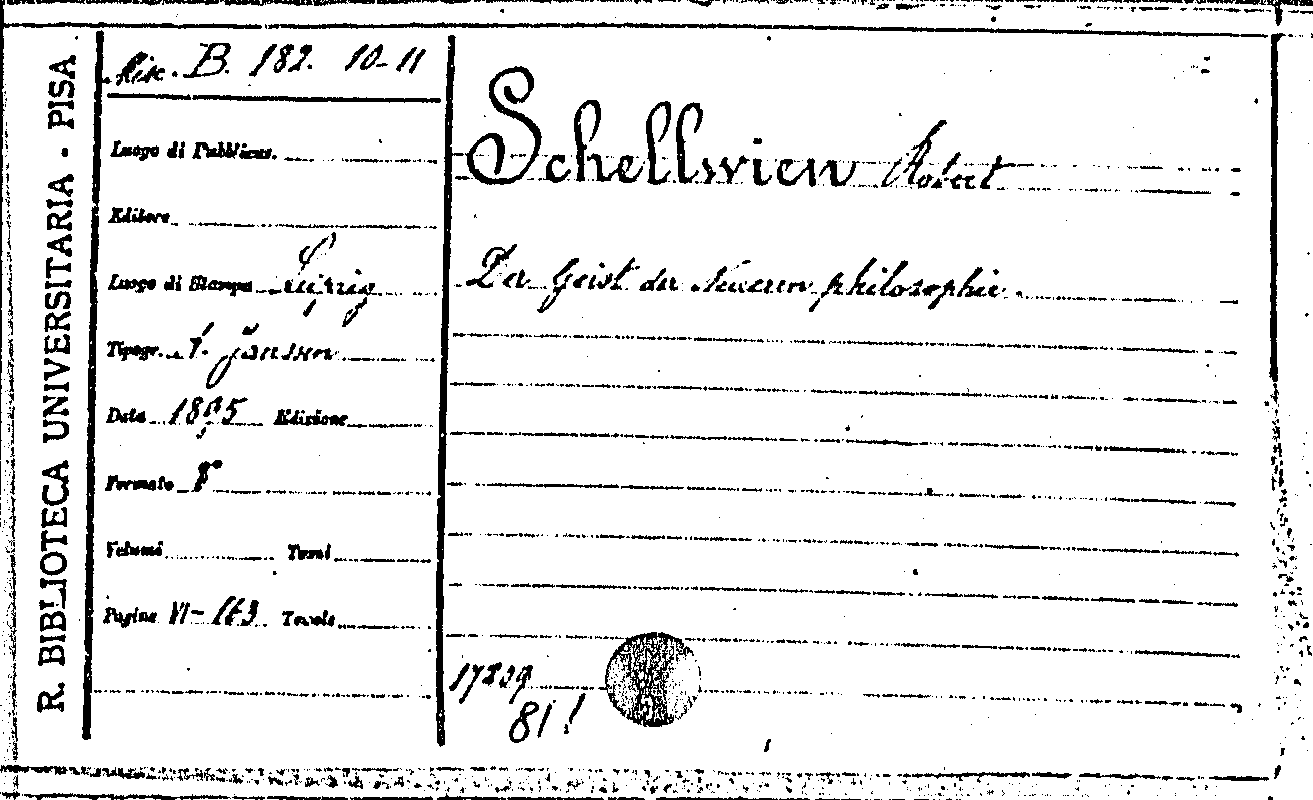 R. BIBLIOTECA UNIVERSITARIA - PISA
Misc. B. 182. 10-11
Luogo di Pubblicaz.
Editore
Luogo di Stampa Leipzig
Tipogr. A. Janssen
Data 1895 Edizione
Formato 8°
Volumi Tomi
Pagine VI-163 Tavole
Schellwien Robert
Der Geist der Neueren philosophie.
17839
81!